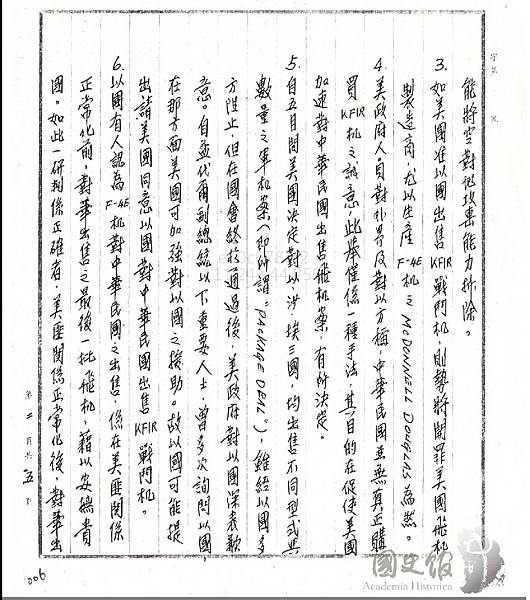 字第 號
能將空對地攻擊能力拆除。
3. 如美國准以國出售KFIR戰鬥机，則勢將開罪美國飛机
製造商，尤以生產F-4E机之McDONNELL DOUGLAS為然。
4. 美政府人員對外界及對以方稱，中華民國並無真正購
買KFIR机之誠意，此舉僅係一種手法，其目的在促使美國
加速對中華民國出售飛机案，有所決定。
5. 自五月間美國決定對以、沙、埃三國，均出售不同型式與
數量之軍机案（即所謂"PACKAGE DEAL"），雖經以國多
方阻止，但在國會終被通過後，美政府對以國深表歉
意。自孟代爾副總統以下重要人士，曾多次詢問以國，
在那方面美國可加強對以國之援助。故以國可能提
出請美國同意以國對中華民國出售KFIR戰鬥机。
6. 以國有人認為F-4E机對中華民國之出售，係在美匪關係
正常化前，對華出售之最後一批飛机，藉以安撫貴
國。如此一研判係正確者，美匪關係正常化後，對華出
第二頁共五頁
006
國史館
Academia Historica